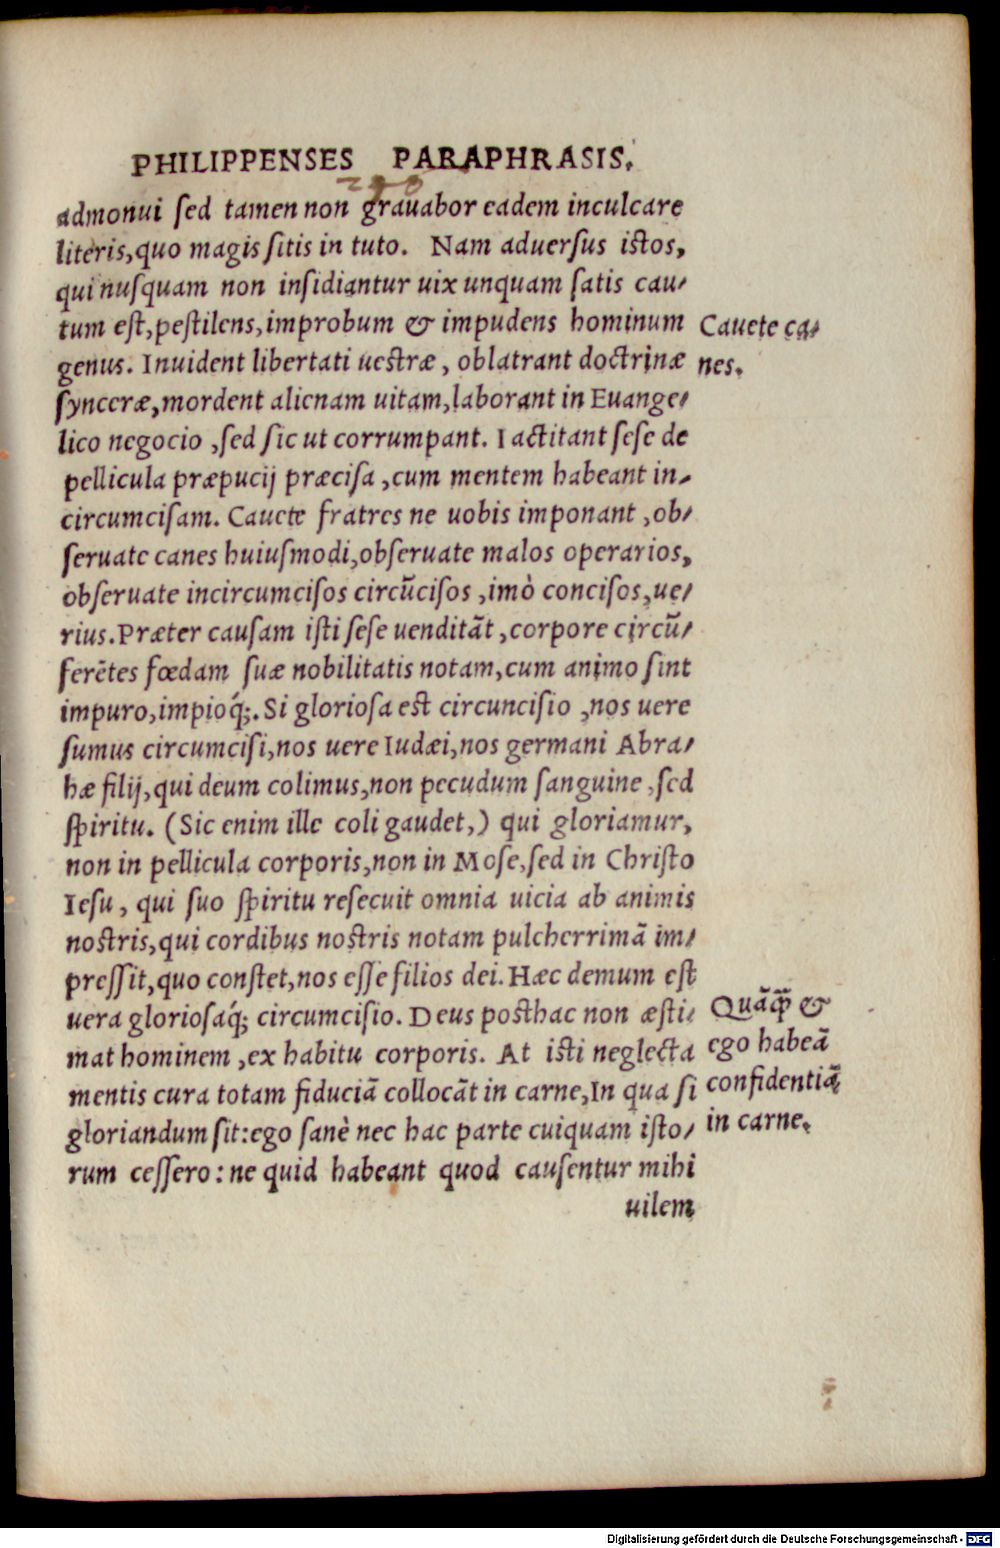 PHILIPPENSES PARAPHRASIS.
admonui sed tamen non grauabor eadem inculcare
literis, quo magis sitis in tuto. Nam aduersus istos,
qui nusquam non insidiantur uix unquam satis cau/
tum est, pestilens, improbum & impudens hominum
genus. Inuident libertati uestræ, oblatrant doctrinæ
synceræ, mordent alienam uitam, laborant in Euange/
lico negocio, sed sic ut corrumpant. Iactitant sese de
pellicula præpucij præcisa, cum mentem habeant in/
circumcisam. Cauete fratres ne uobis imponant, ob/
seruate canes huiusmodi, obseruate malos operarios,
obseruate incircumcisos circũcisos, imò concisos, ue/
rius. Præter causam isti sese uenditãt, corpore circũ/
ferẽtes fœdam suæ nobilitatis notam, cum animo sint
impuro, impioq́;. Si gloriosa est circuncisio, nos uere
sumus circumcisi, nos uere Iudæi, nos germani Abra/
hæ filij, qui deum colimus, non pecudum sanguine, sed
spiritu. (Sic enim ille coli gaudet,) qui gloriamur,
non in pellicula corporis, non in Mose, sed in Christo
Iesu, qui suo spiritu resecuit omnia uicia ab animis
nostris, qui cordibus nostris notam pulcherrimã im/
pressit, quo constet, nos esse filios dei. Hæc demum est
uera gloriosaq́; circumcisio. Deus posthac non æsti/
mat hominem, ex habitu corporis. At isti neglecta
mentis cura totam fiduciã collocãt in carne, In qua si
gloriandum sit: ego sanè nec hac parte cuiquam isto/
rum cessero: ne quid habeant quod causentur mihi
uilem
Cauete ca/
nes.
Quãq̃ &
ego habeã
confidentiã
in carne.
Digitalisierung gefördert durch die Deutsche Forschungsgemeinschaft - DFG